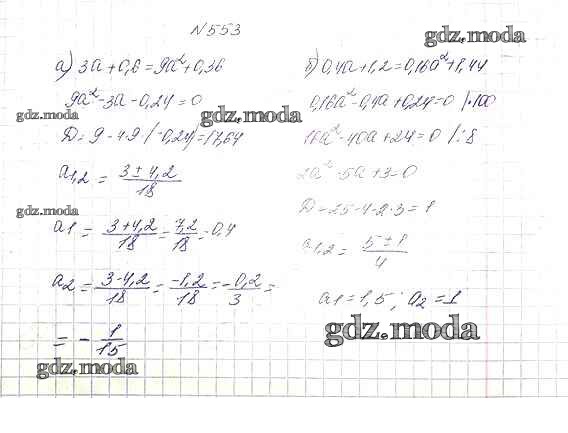 N 553
gdz.moda
а) 3a + 0,6 = 9a² + 0,36
9a² - 3a - 0,24 = 0
gdz.moda
gdz.moda
D = 9 - 4·9·(-0,24) = 17,64
a1,2 = (3 ± 4,2)/18
gdz.moda
a1 = (3+4,2)/18 = 7,2/18 = 0,4
a2 = (3-4,2)/18 = -1,2/18 = -0,2/3 =
= - 1/15
gdz.moda
б) 0,4a + 1,2 = 0,16a² + 1,44
0,16a² - 0,4a + 0,24 = 0 |·100
16a² - 40a + 24 = 0 |:8
2a² - 5a + 3 = 0
D = 25 - 4·2·3 = 1
a1,2 = (5 ± 1)/4
a1 = 1,5; a2 = 1
gdz.moda